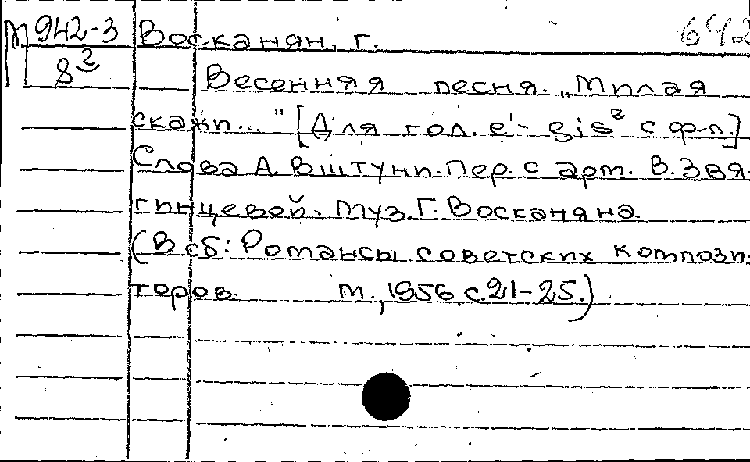 М 942-3 Восканян, г. 642
8²
Весенняя песня. „Милая
скажи..." [Для гол. e¹- gis² с ф-п.]
Слова А. Вштуни. Пер. с арт. В. Звя-
гинцевой. Муз. Г. Восканяна.
(В сб: Романсы советских компози-
торов. М., 1956 с. 21-25.)